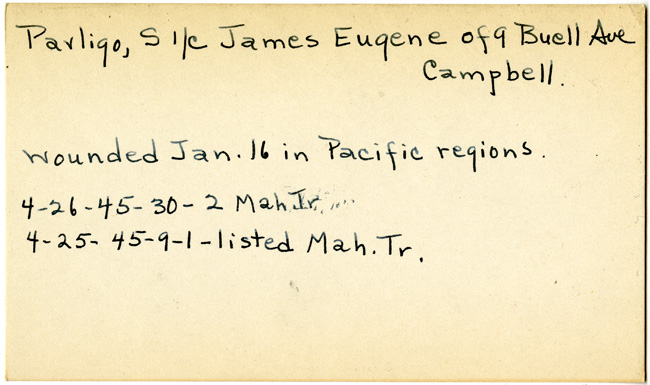 Parligo, S 1/c James Eugene of 9 Buell Ave
Campbell.
wounded Jan. 16 in Pacific regions.
4-26-45-30-2 Mah Tr
4-25-45-9-1-listed Mah. Tr.